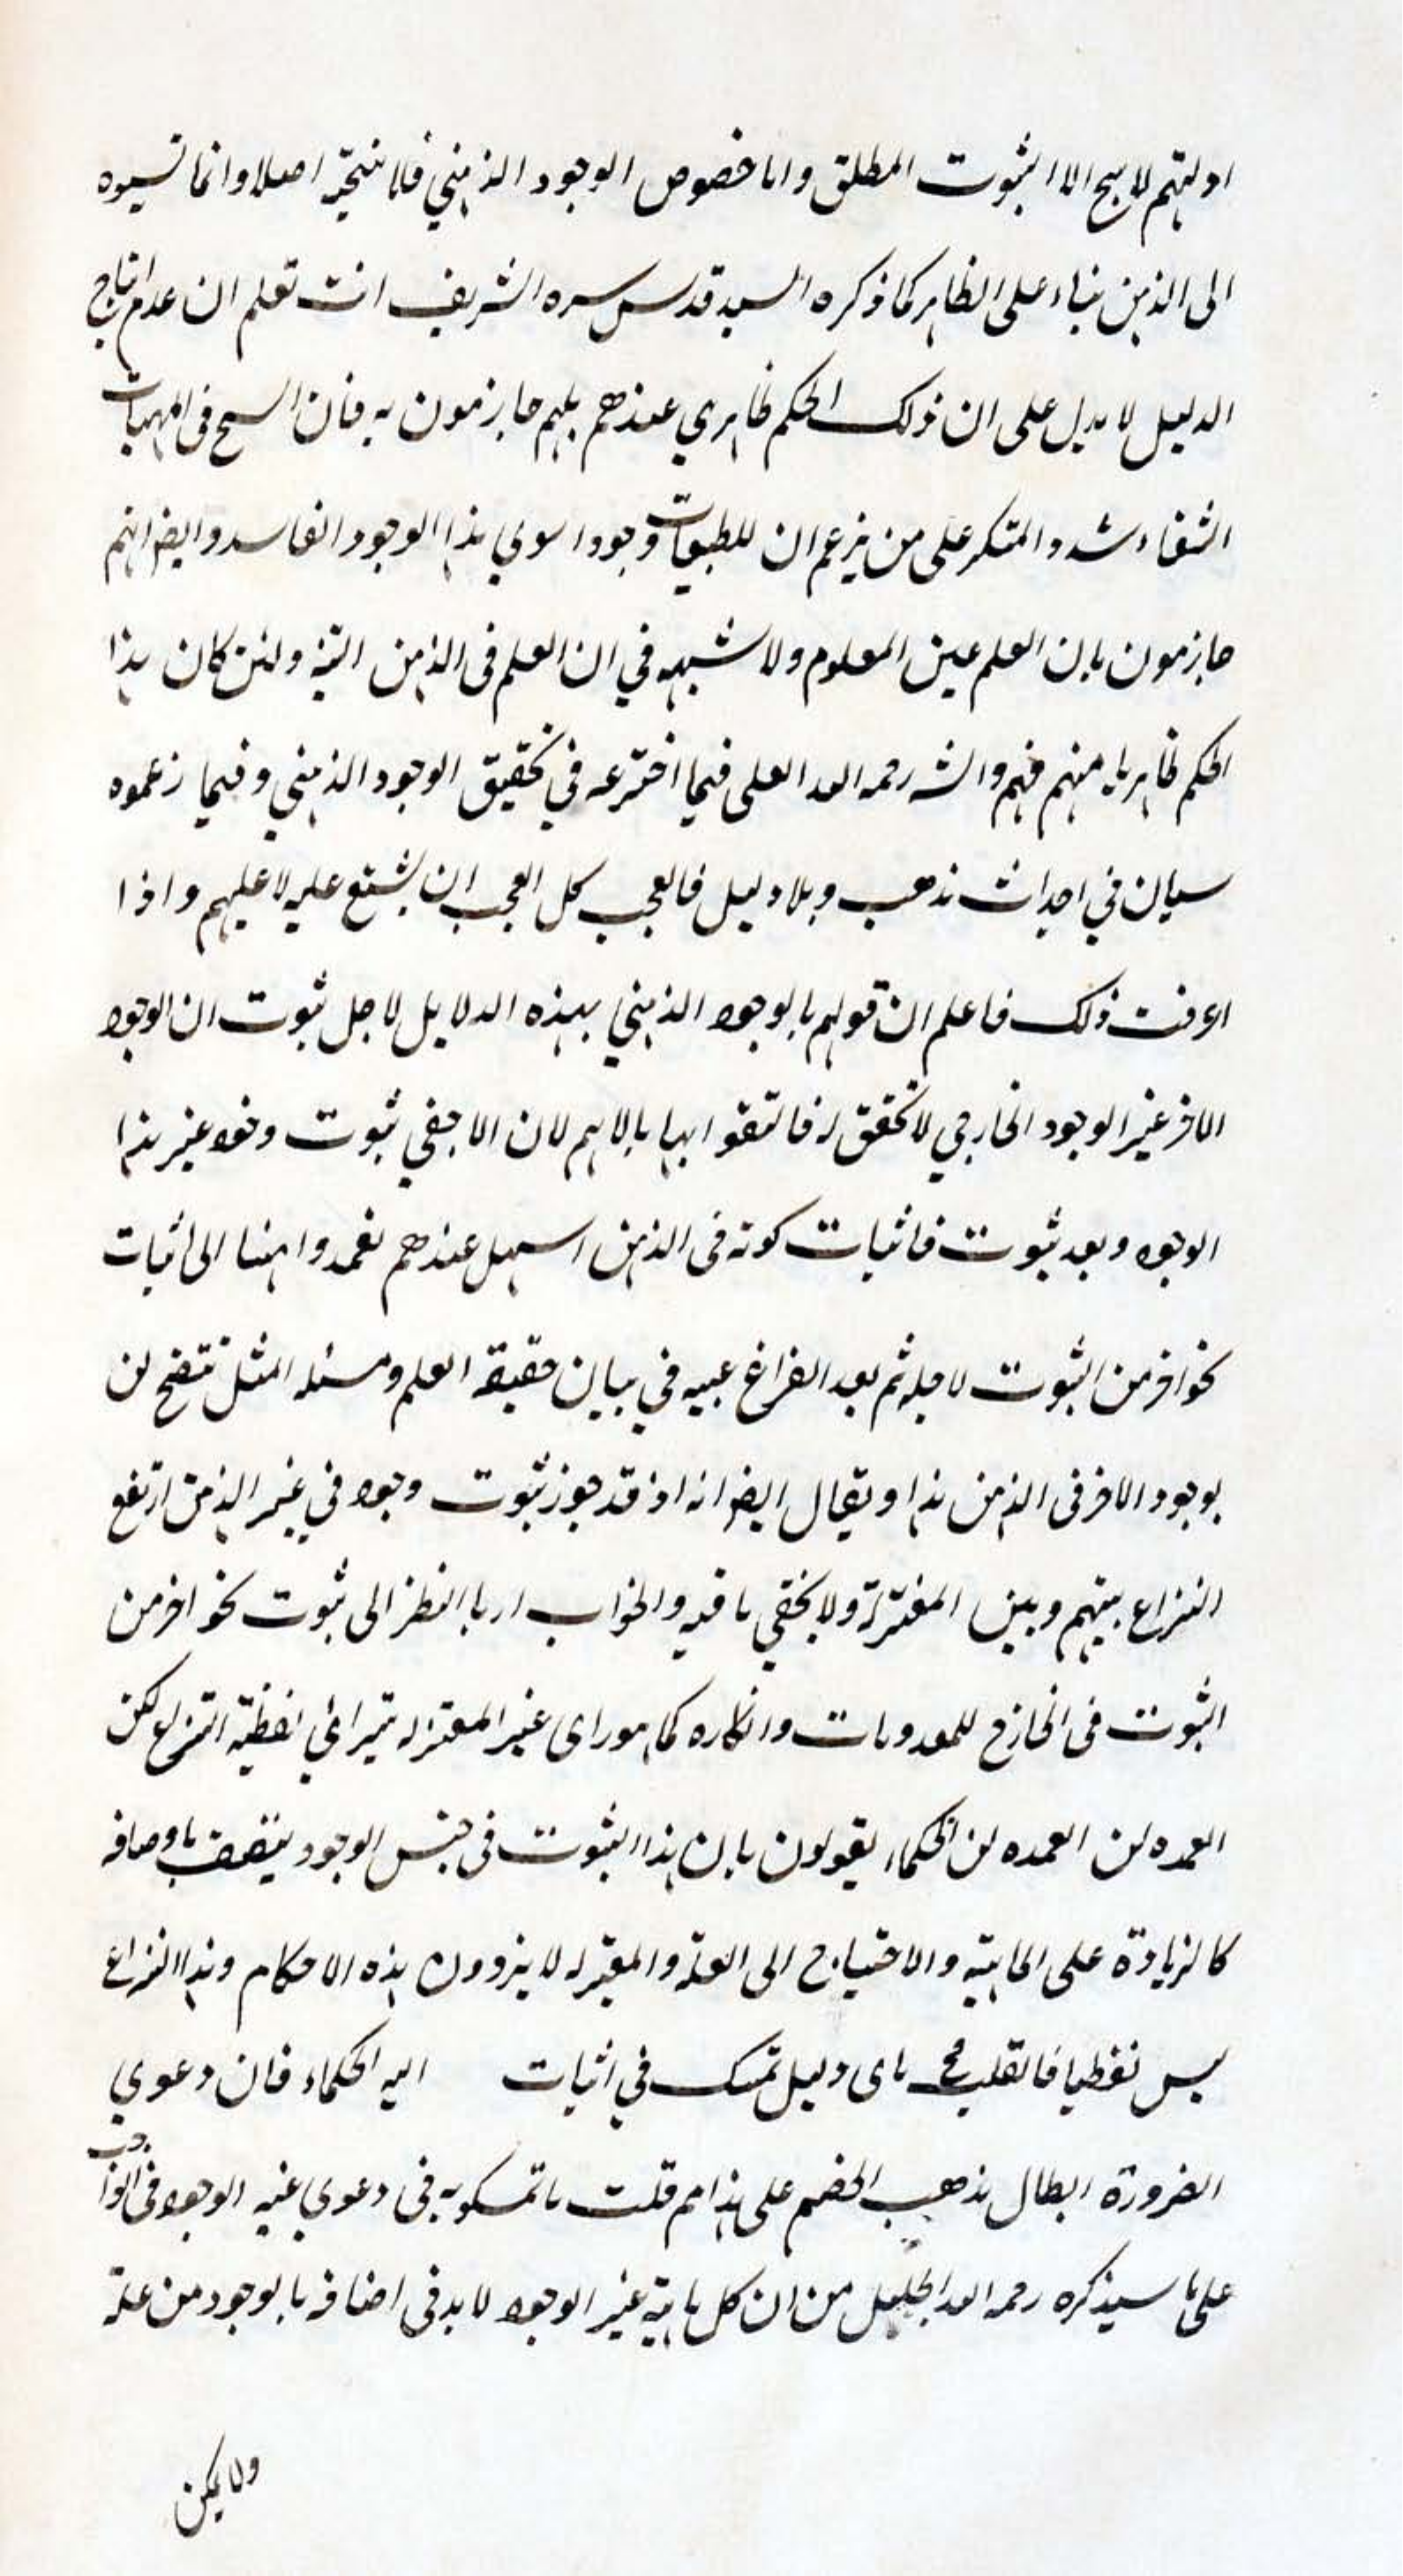 ادلتهم لا ينتج الا الثبوت المطلق واما خصوص الوجود الذهني فلا ينتجه اصلا وانما نسبوه
الى الذهن بناء على الظاهر كما ذكره السيد قدس سره الشريف انت تعلم ان عدم انتاج
الدليل لا يدل على ان ذلك الحكم ظاهري عندهم بل هم جازمون به فان الشيخ في الهيات
الشفاء شدد المنكر على من يزعم ان للطبيعيات وجودا سوى هذا الوجود الفاسد وايضا انهم
جازمون بان العلم عين المعلوم ولا شبهه في ان العلم في الذهن البتة ولئن كان هذا
الحكم ظاهريا منهم فهم والشه رحمه الله العلى فيما اخترعه في تحقيق الوجود الذهني وفيما زعموه
سيان في احداث مذهب وبلا دليل فالعجب كل العجب ان يشنع عليه لا عليهم واذا
اعرفت ذلك فاعلم ان قولهم بالوجود الذهني بهذه الدلايل لاجل ثبوت ان الوجود
الاخر غير الوجود الخارجي لا تحقق له فالتفوا بها بالاهم لان الاخفي ثبوت وجود غير هذا
الوجود وبعد ثبوت فاثبات كونه في الذهن اسهل عندهم فعمدوا ههنا الى اثبات
نحو اخر من الثبوت لاجله ثم بعد الفراغ عنه في بيان حقيقة العلم ومسئله المثل تتضح لن
بوجود الاخر في الذهن هذا ويقال ايضا انه اذ قد جوز ثبوت وجود في غير الذهن ارتفع
النزاع بينهم وبين المعتزلة ولا يخفي ما فيه والجواب ان بالنظر الى ثبوت نحو اخر من
الثبوت في الخارج للمعدومات وانكاره كما هو راى غير المعتزله يترائي لفظية النزاع لكن
العمده لن العمده لن الحكماء يقولون بان هذا الثبوت في جنس الوجود يتصف باوصافه
كالزيادة على الماهية والاحتياج الى العلة والمعتزله لا يزودون هذه الاحكام وهذا النزاع
ليس لفظيا فان قلت فح باى دليل تمسك في اثبات اليه الحكماء فان دعوي
الضرورة ابطال مذهب الخصم على هذا مم قلت ما تمسكوا به في دعوي عينيه الوجود في الواجب
على ما سيذكره رحمه الله الجليل من ان كل ماهية غير الوجود لا بد في اضافه بالوجود من علة
ولا يمكن